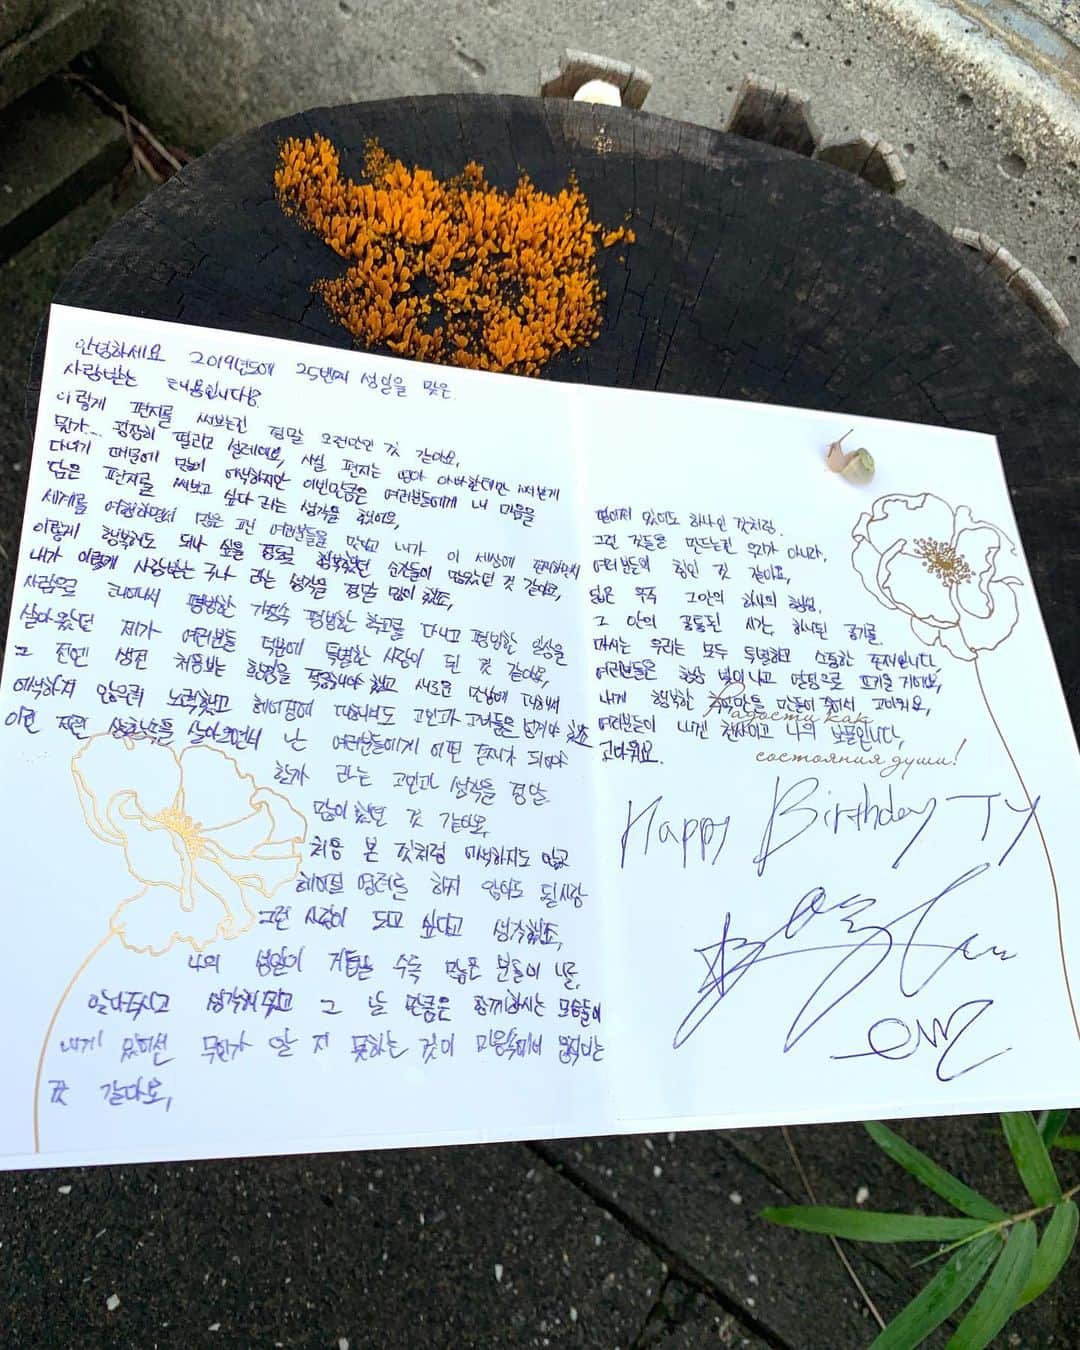 안녕하세요 2019년도에 25번째 생일을 맞은
사랑받는 태용입니다용.
이렇게 편지를 써보는건 정말 오랜만인 것 같아요,
뭔가... 굉장히 떨리고 설레여요, 사실 편지는 엄마 아빠한테만 써본게
다여기 때문에 많이 어색하지만 이번만큼은 여러분들에게 내 마음을
담은 편지를 써보고 싶다 라는 생각을 했어요,
세계를 여행하면서 많은 팬 여러분들을 만나고 내가 이 세상에 존재하면서
이렇게 행복해도 되나 싶을 정도로 행복했던 순간들이 많았던 것 같아요,
내가 이렇게 사랑받는 구나 라는 생각을 정말 많이 했죠,
사람으로 태어나서 평범한 가족속 평범한 학교를 다니고 평범한 일상을
살아왔던 제가 여러분들 덕분에 특별한 사람이 된 것 같아요,
그 전엔 생전 처음보는 환경을 적응해야 했고 새로운 만남에 대해서
어색하지 않으려 노력했고 헤어짐에 대해서도 고민과 고뇌들은 넘겨야 했죠
이런 저런 상황속을 살아오면서 난 여러분들에게 어떤 존재가 되어야
할까 라는 고민과 생각을 정말
많이 했던 것 같아요,
처음 본 것처럼 어색하지도 않고
헤어질 염려를 하지 않아도 될 사람
그런 사람이 되고 싶다고 생각했죠,
나의 생일이 거듭될 수록 많은 분들이 나를,
알아주시고 생각해주고 그 날 만큼은 함께하시는 모습들이
내게 있어선 무언가 알 지 못하는 것이 마음속에서 움직이는
것 같아요,
떨어져 있어도 하나인 것처럼.
그런 것들을 만드는건 우리가 아니라,
여러분들의 힘인 것 같아요,
넓은 우주 그안의 하나의 행성,
그 안의 공통된 시간, 하나된 공기를
마시는 우리는 모두 특별하고 소중한 존재입니다,
여러분들은 항상 빛이나고 열정으로 뜨거울 거에요,
내게 행복한 추억만을 만들어 줘서 고마워요,
Радости как
여러분들이 내겐 천사이고 나의 보물입니다,
состояния души!
고마워요.
Happy Birthday TY